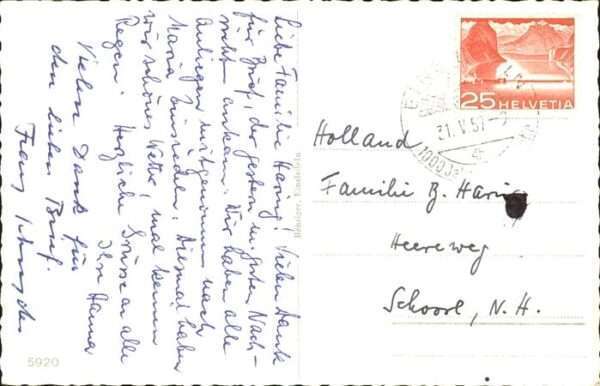 Liebe Familie Haring! Vielen Dank
für Brief, der gestern m. guten Nach-
richt ankam. Wir haben alle
Anliegen mitgenommen nach
Maria Einsiedeln. Diesmal haben
wir schönes Wetter, mal keinen
Regen. Herzliche Grüsse an alle
Ihre Hanna
Vielen Dank für
den lieben Brief.
Franz
5920
Einsiedeln
25 HELVETIA
31. V 57
Holland
Familie B. Haring
Heereweg
Schoorl, N. H.